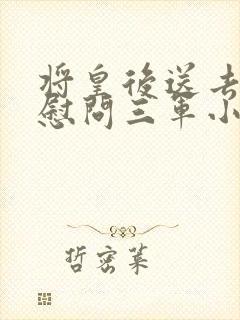 将皇後送去
慰問三軍小
哲密葉